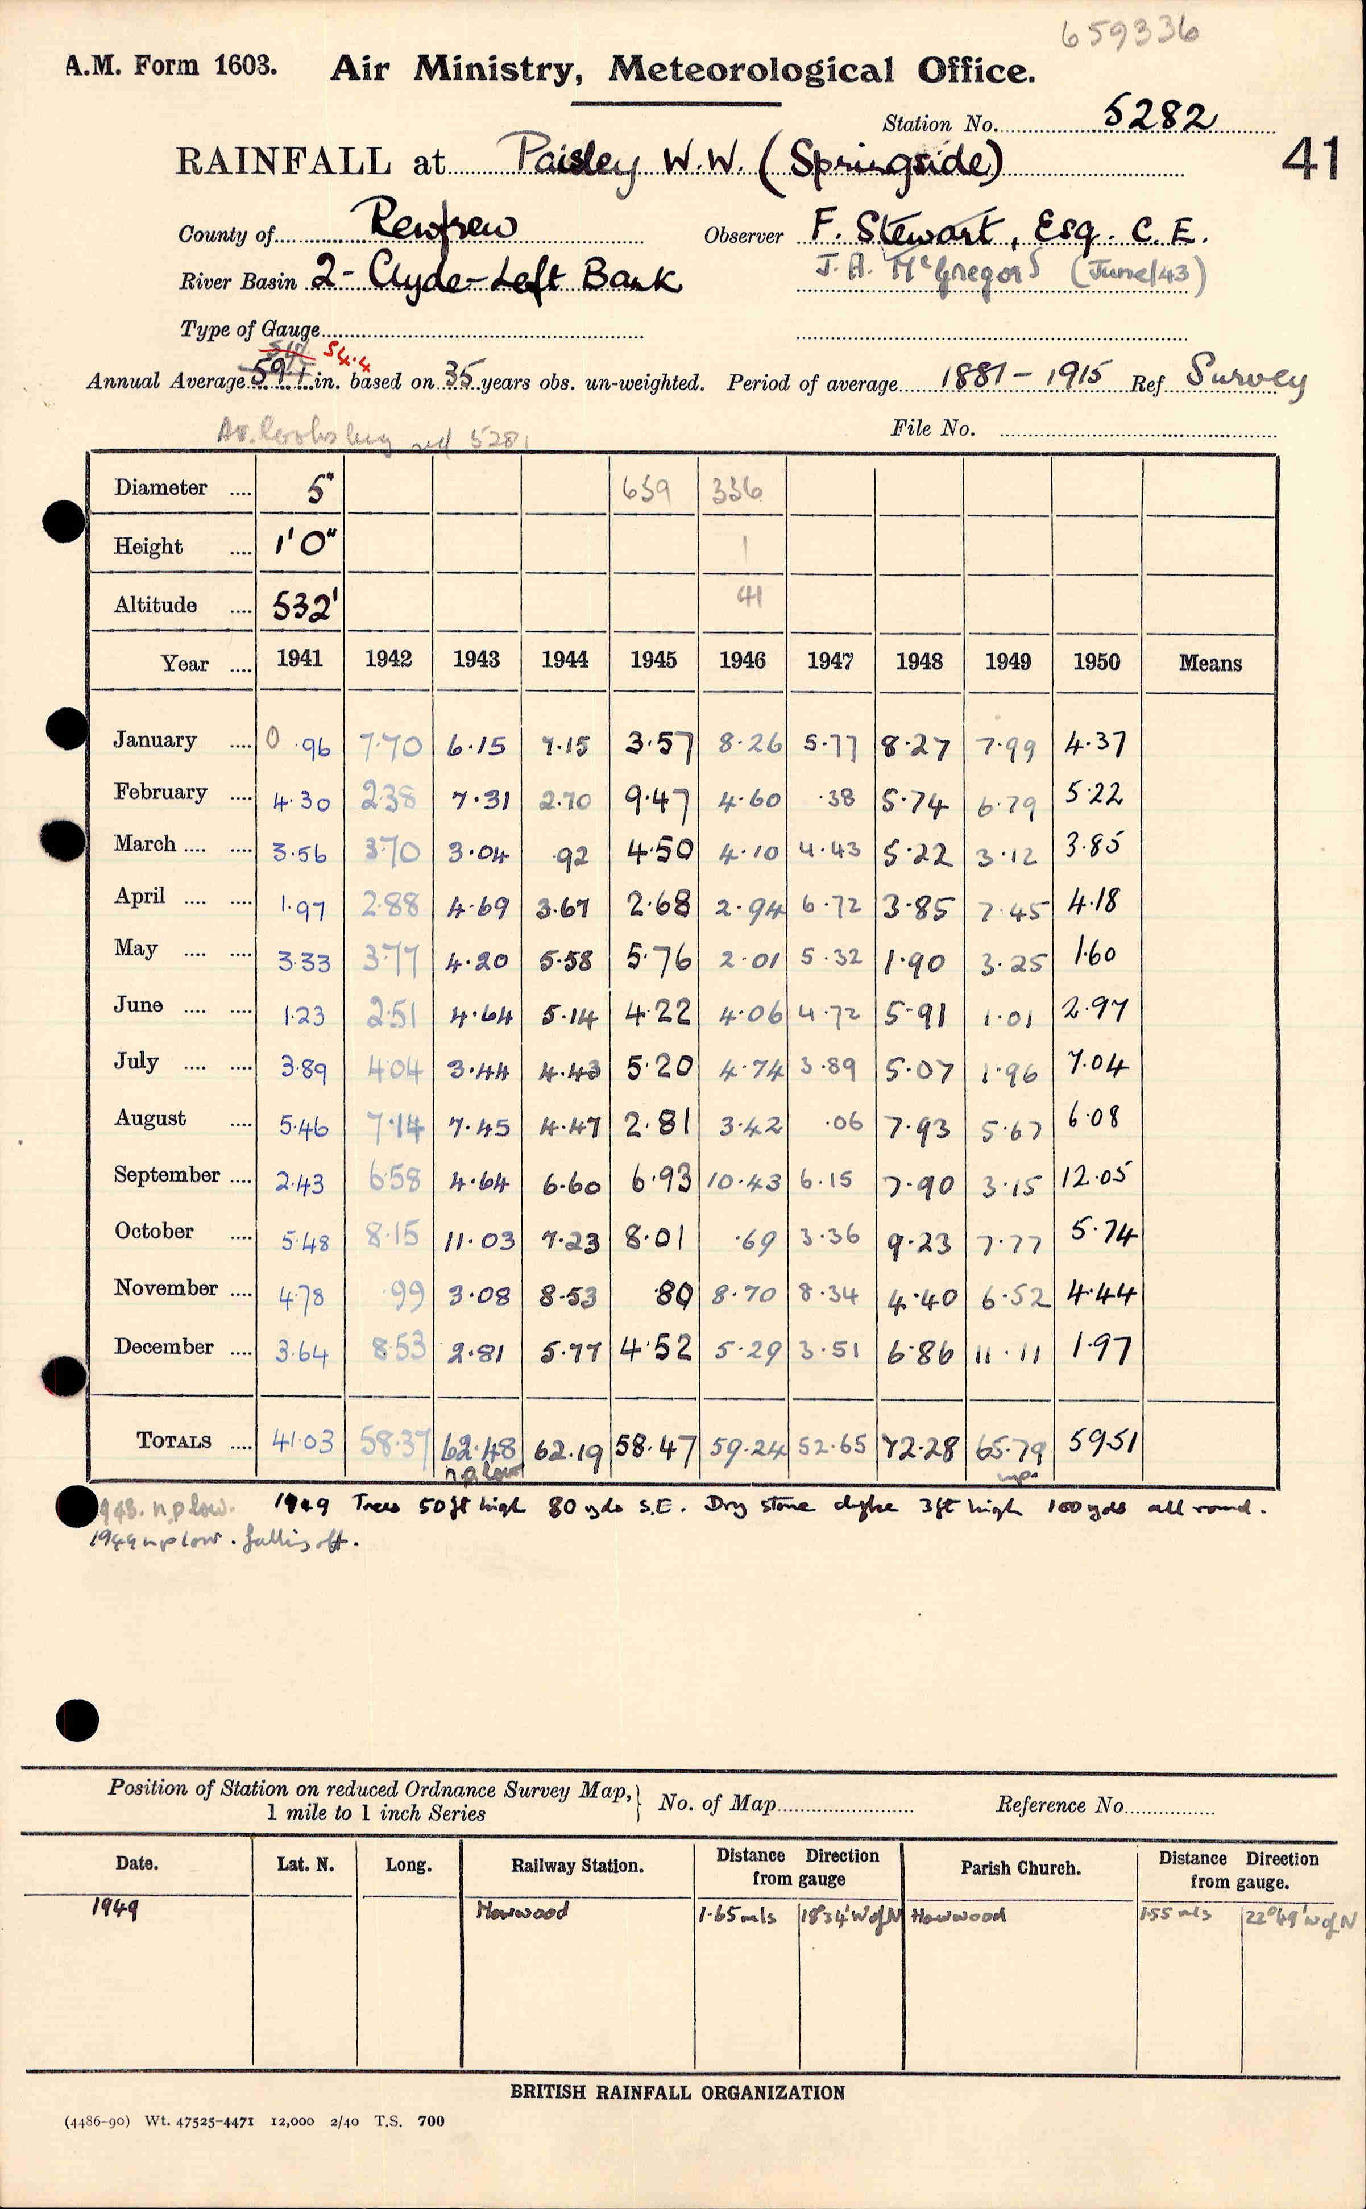 659336
A.M. Form 1603. Air Ministry, Meteorological Office.
Station No. 5282
41
RAINFALL at Paisley W.W. (Springside)
County of Renfrew Observer F. Stewart, Esq. C.E.
River Basin 2 - Clyde - Left Bank J. A. McGregor (June/43)
Type of Gauge
54.4
Annual Average 59.1 in. based on 35 years obs. un-weighted. Period of average 1881 - 1915 Ref Survey
5281 File No.
Diameter .... 5" 659 336
Height .... 1'0" 1
Altitude .... 532' 41
Year .... 1941 1942 1943 1944 1945 1946 1947 1948 1949 1950 Means
January .... 0.96 7.70 6.15 7.15 3.57 8.26 5.77 8.27 7.99 4.37
February .... 4.30 2.38 7.31 2.70 9.47 4.60 .38 5.74 6.79 5.22
March .... .... 3.56 3.70 3.04 .92 4.50 4.10 4.43 5.22 3.12 3.85
April .... .... 1.97 2.88 4.69 3.67 2.68 2.94 6.72 3.85 7.45 4.18
May .... .... 3.33 3.77 4.20 5.58 5.76 2.01 5.32 1.90 3.25 1.60
June .... .... 1.23 2.51 4.64 5.14 4.22 4.06 4.72 5.91 1.01 2.97
July .... .... 3.89 4.04 3.44 4.43 5.20 4.74 3.89 5.07 1.96 7.04
August .... 5.46 7.14 7.45 4.47 2.81 3.42 .06 7.93 5.67 6.08
September .... 2.43 6.58 4.64 6.60 6.93 10.43 6.15 7.90 3.15 12.05
October .... 5.48 8.15 11.03 7.23 8.01 .69 3.36 9.23 7.77 5.74
November .... 4.78 .99 3.08 8.53 .80 8.70 8.34 4.40 6.52 4.44
December .... 3.64 8.53 2.81 5.77 4.52 5.29 3.51 6.86 11.11 1.97
TOTALS .... 41.03 58.37 62.48 62.19 58.47 59.24 52.65 72.28 65.79 59.51
n.p. low
1948. n.p low. 1949 Trees 50 ft high 80 yds S.E. Dry stone dyke 3ft high 100 yds all round.
1949 n p low. falling off.
Position of Station on reduced Ordnance Survey Map, } No. of Map Reference No.
1 mile to 1 inch Series
Date. Lat. N. Long. Railway Station. Distance from gauge Direction Parish Church. Distance from gauge. Direction
1949 Howwood 1.65 mls 18°34' W of N Howwood 1.55 mls 22°49' W of N
BRITISH RAINFALL ORGANIZATION
(4486-90) Wt. 47525-4471 12,000 2/40 T.S. 700